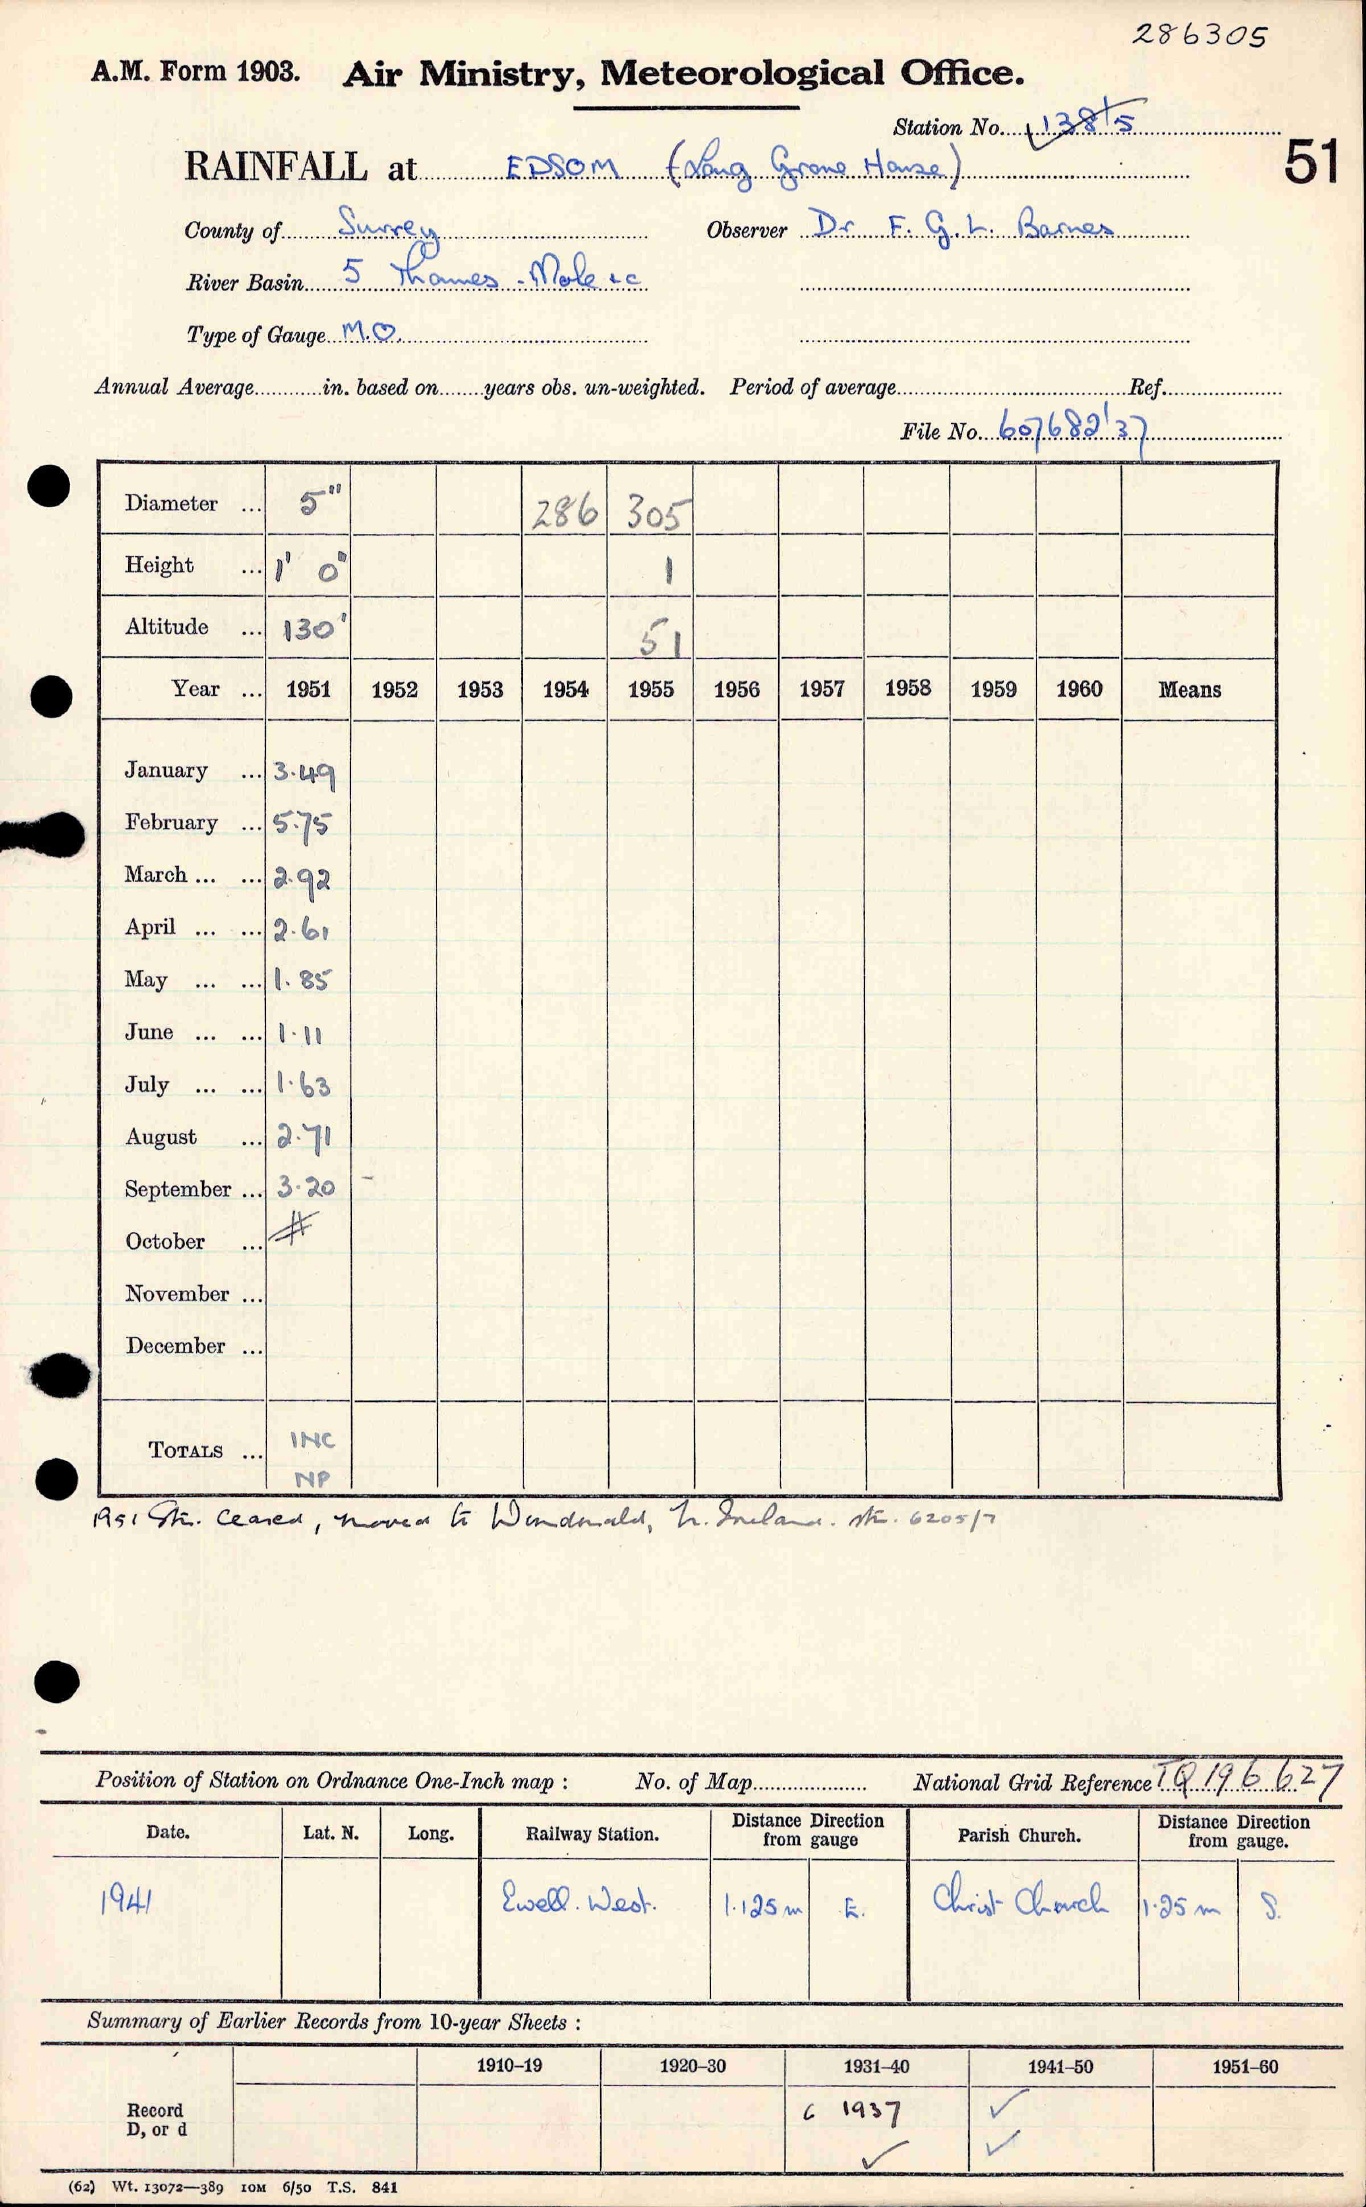 286305
A.M. Form 1903. Air Ministry, Meteorological Office.
Station No. 138/5
51
RAINFALL at EDSOM (Long Grove House)
County of Surrey Observer Dr F. G. L. Barnes
River Basin 5 Thames - Mole &c
Type of Gauge M.O.
Annual Average in. based on years obs. un-weighted. Period of average Ref.
File No. 607682/37
Diameter ... 5" 286 305
Height ... 1' 0" 1
Altitude ... 130' 51
Year ... 1951 1952 1953 1954 1955 1956 1957 1958 1959 1960 Means
January ... 3.49
February ... 5.75
March ... ... 2.92
April ... ... 2.61
May ... ... 1.85
June ... ... 1.11
July ... ... 1.63
August ... 2.71
September ... 3.20 -
October ... #
November ...
December ...
TOTALS ... INC
NP
1951 Stn. Ceased, moved to N. Ireland. stn. 6205/7
Position of Station on Ordnance One-Inch map : No. of Map National Grid Reference TQ 196 627
Date. Lat. N. Long. Railway Station. Distance Direction from gauge Parish Church. Distance Direction from gauge.
1941 Ewell. West. 1.125 m E. Christ Church 1.25 m S.
Summary of Earlier Records from 10-year Sheets :
1910–19 1920–30 1931–40 1941–50 1951–60
Record c 1937 ✓
D, or d ✓ ✓
(62) Wt. 13072—389 10M 6/50 T.S. 841